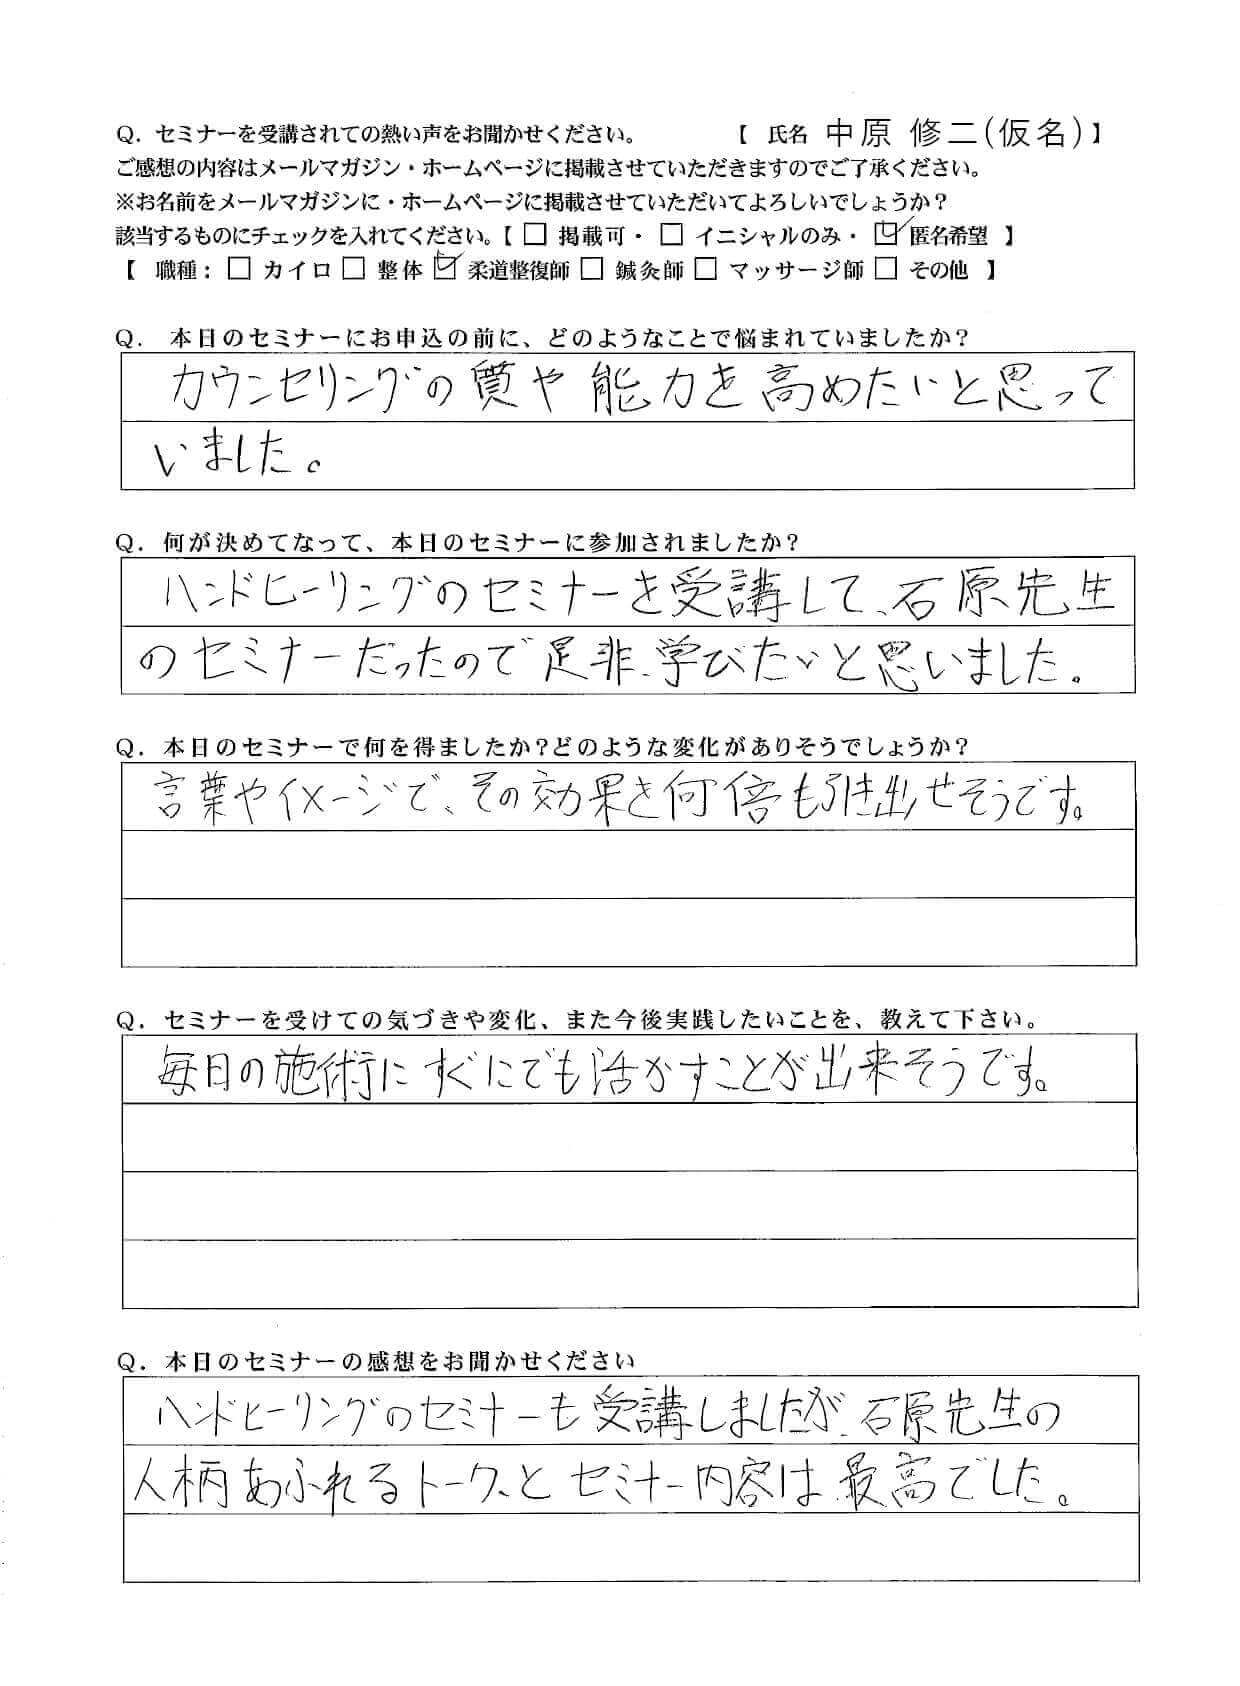 Q. セミナーを受講されての熱い声をお聞かせください。 【 氏名 中原 修二(仮名) 】
ご感想の内容はメールマガジン・ホームページに掲載させていただきますのでご了承ください。
※お名前をメールマガジンに・ホームページに掲載させていただいてよろしいでしょうか？
該当するものにチェックを入れてください。【 □ 掲載可・ □ イニシャルのみ・ ☑ 匿名希望 】
【 職種： □ カイロ □ 整体 ☑ 柔道整復師 □ 鍼灸師 □ マッサージ師 □ その他 】
Q. 本日のセミナーにお申込の前に、どのようなことで悩まれていましたか？
カウンセリングの質や能力を高めたいと思って
いました。
Q. 何が決めてなって、本日のセミナーに参加されましたか？
ハンドヒーリングのセミナーを受講して、石原先生
のセミナーだったので是非、学びたいと思いました。
Q. 本日のセミナーで何を得ましたか？どのような変化がありそうでしょうか？
言葉やイメージで、その効果を何倍も引き出せそうです。
Q. セミナーを受けての気づきや変化、また今後実践したいことを、教えて下さい。
毎日の施術にすぐにでも活かすことが出来そうです。
Q. 本日のセミナーの感想をお聞かせください
ハンドヒーリングのセミナーも受講しましたが、石原先生の
人柄あふれるトークと セミナー内容は最高でした。